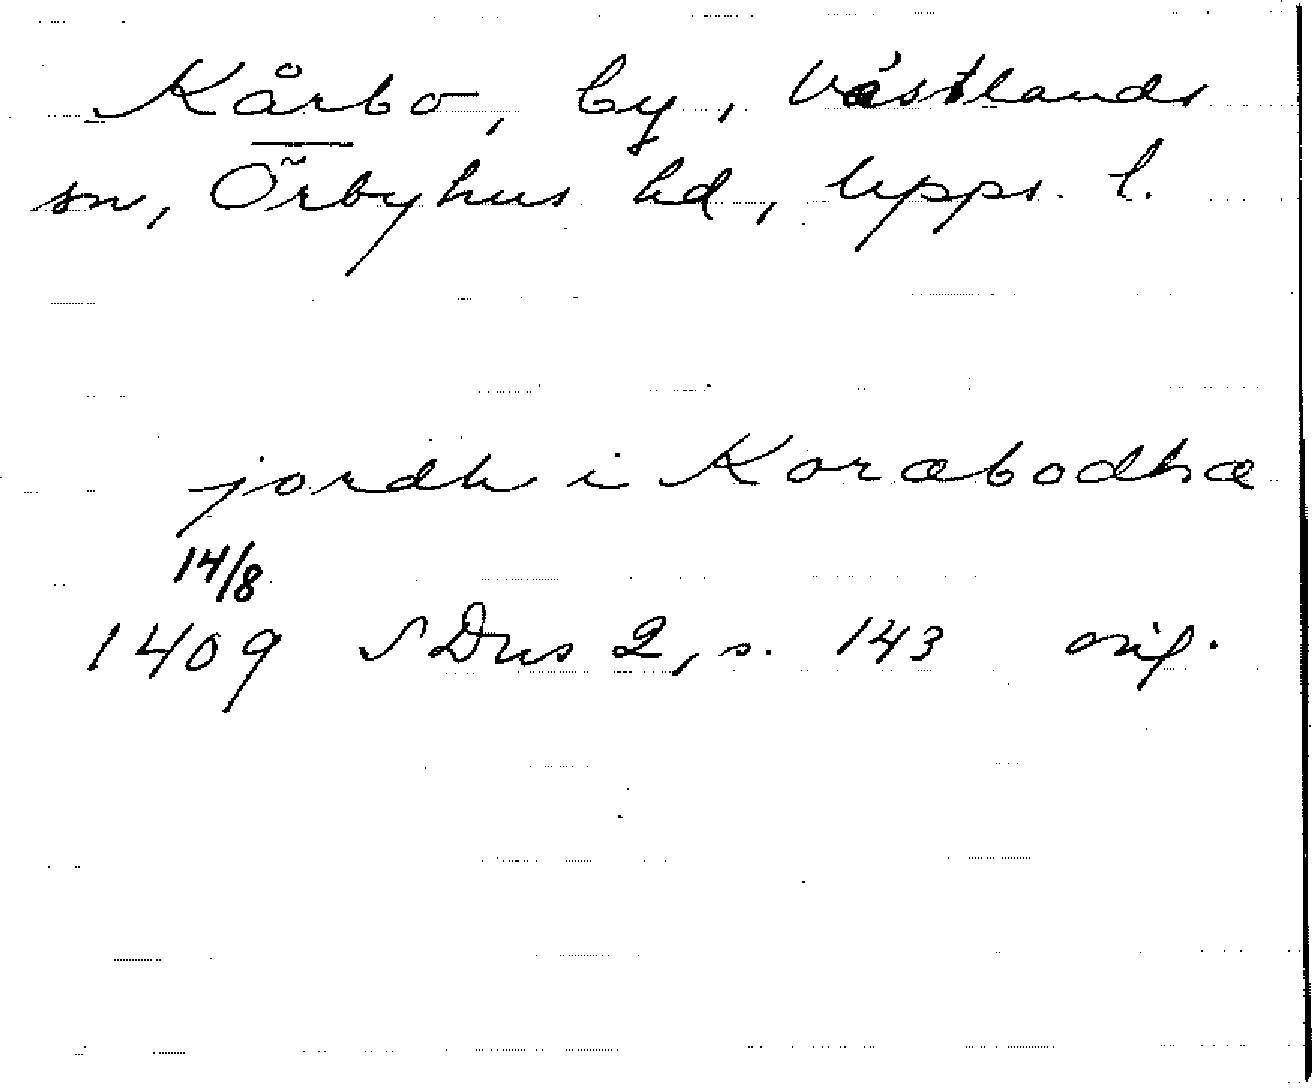 Kårbo, by, Västlands
sn, Örbyhus hd, Upps. l.
jordh i Koræbodhæ
14/8
1409 SDns 2, s. 143 orig.